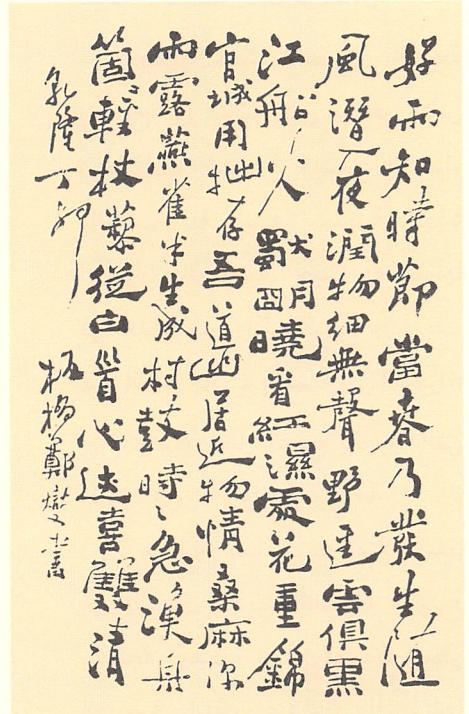 好雨知時節當春乃發生隨
風潛入夜潤物細無聲野逕雲俱黑
江船火獨朙曉看紅濕處花重錦
官城用拙存吾道幽居近物情桑麻深
雨露燕雀半生成村鼓時〻急漁舟
箇〻輕杖藜從白首心迹喜雙清
乾隆丁卯
板橋鄭燮書